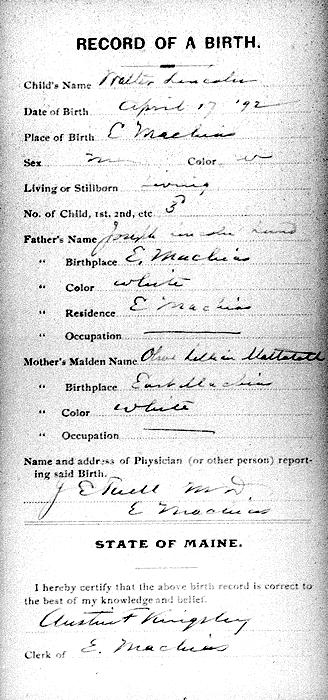 RECORD OF A BIRTH.
Child's Name Walter Lincoln
Date of Birth April 17 '92
Place of Birth E Machias
Sex m Color w
Living or Stillborn Living
No. of Child, 1st, 2nd, etc 3
Father's Name Joseph
" Birthplace E. Machias
" Color white
" Residence E Machias
" Occupation
Mother's Maiden Name Olive Lillian
" Birthplace East Machias
" Color white
" Occupation
Name and address of Physician (or other person) report-
ing said Birth.
J E Tuell M D.
E Machias
STATE OF MAINE.
I hereby certify that the above birth record is correct to
the best of my knowledge and belief.
Austin F Kingsley
Clerk of E. Machias